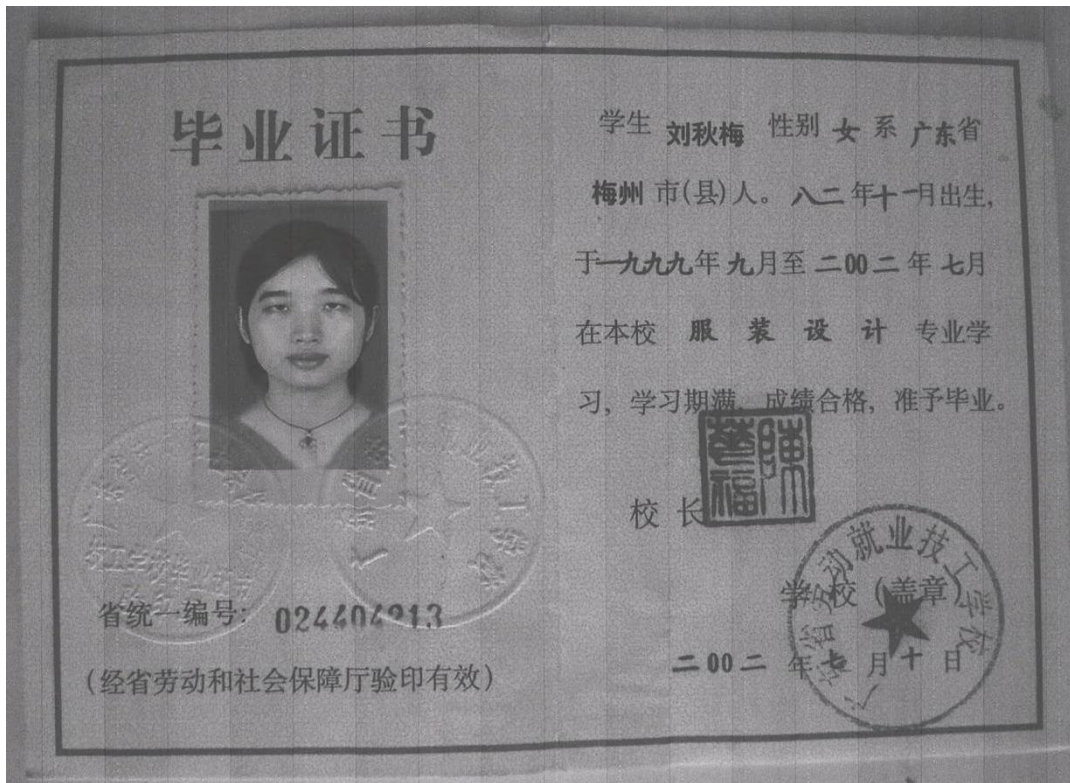 毕业证书
省统一编号: 024404213
(经省劳动和社会保障厅验印有效)
学生 刘秋梅 性别 女 系 广东省
梅州 市(县)人。八二年十一月出生,
于一九九九年九月至二00二年七月
在本校 服装设计 专业学
习, 学习期满, 成绩合格, 准予毕业。
校长
陳
福
学校(盖章)
广东省劳动就业技工学校
二00二年七月十日